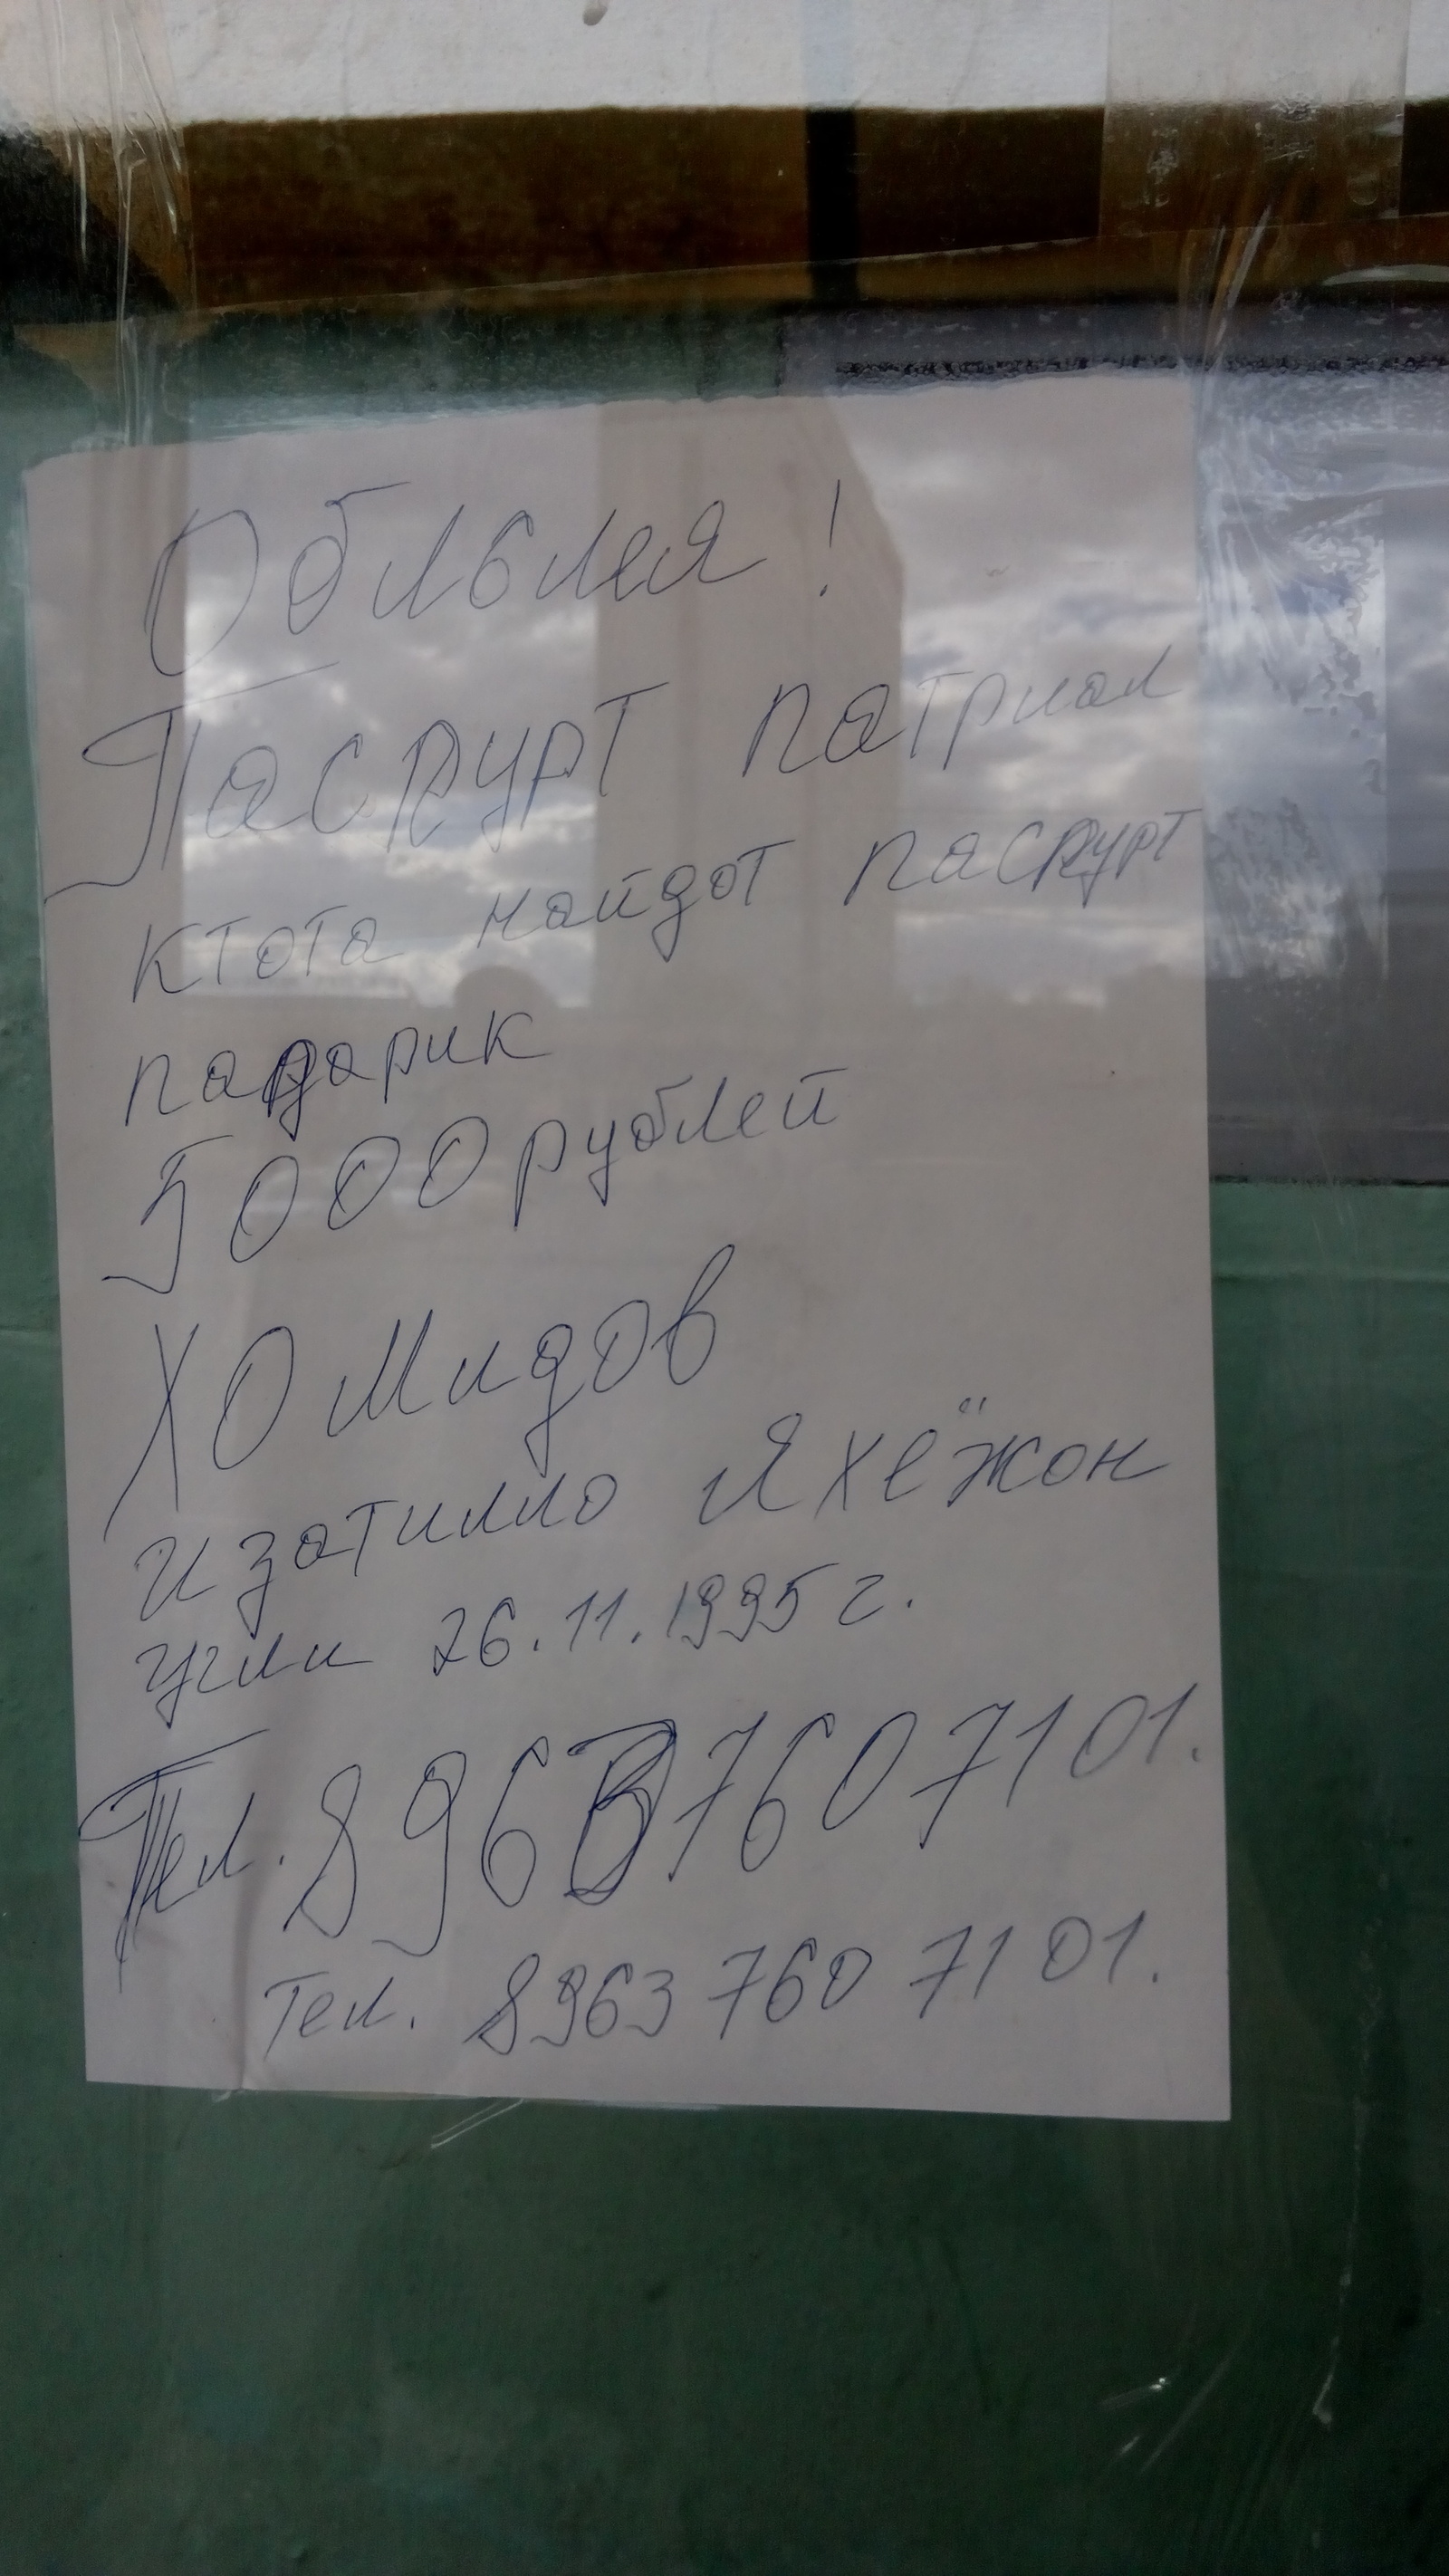 Обльлея!
Паспурт патриал
ктота найдот паспурт
падарик
5000 рублей
Хомидов
изатилло Яхёжон
угли 26.11.1995 г.
Тел. 8963760 71 01.
Тел. 8963 760 71 01.